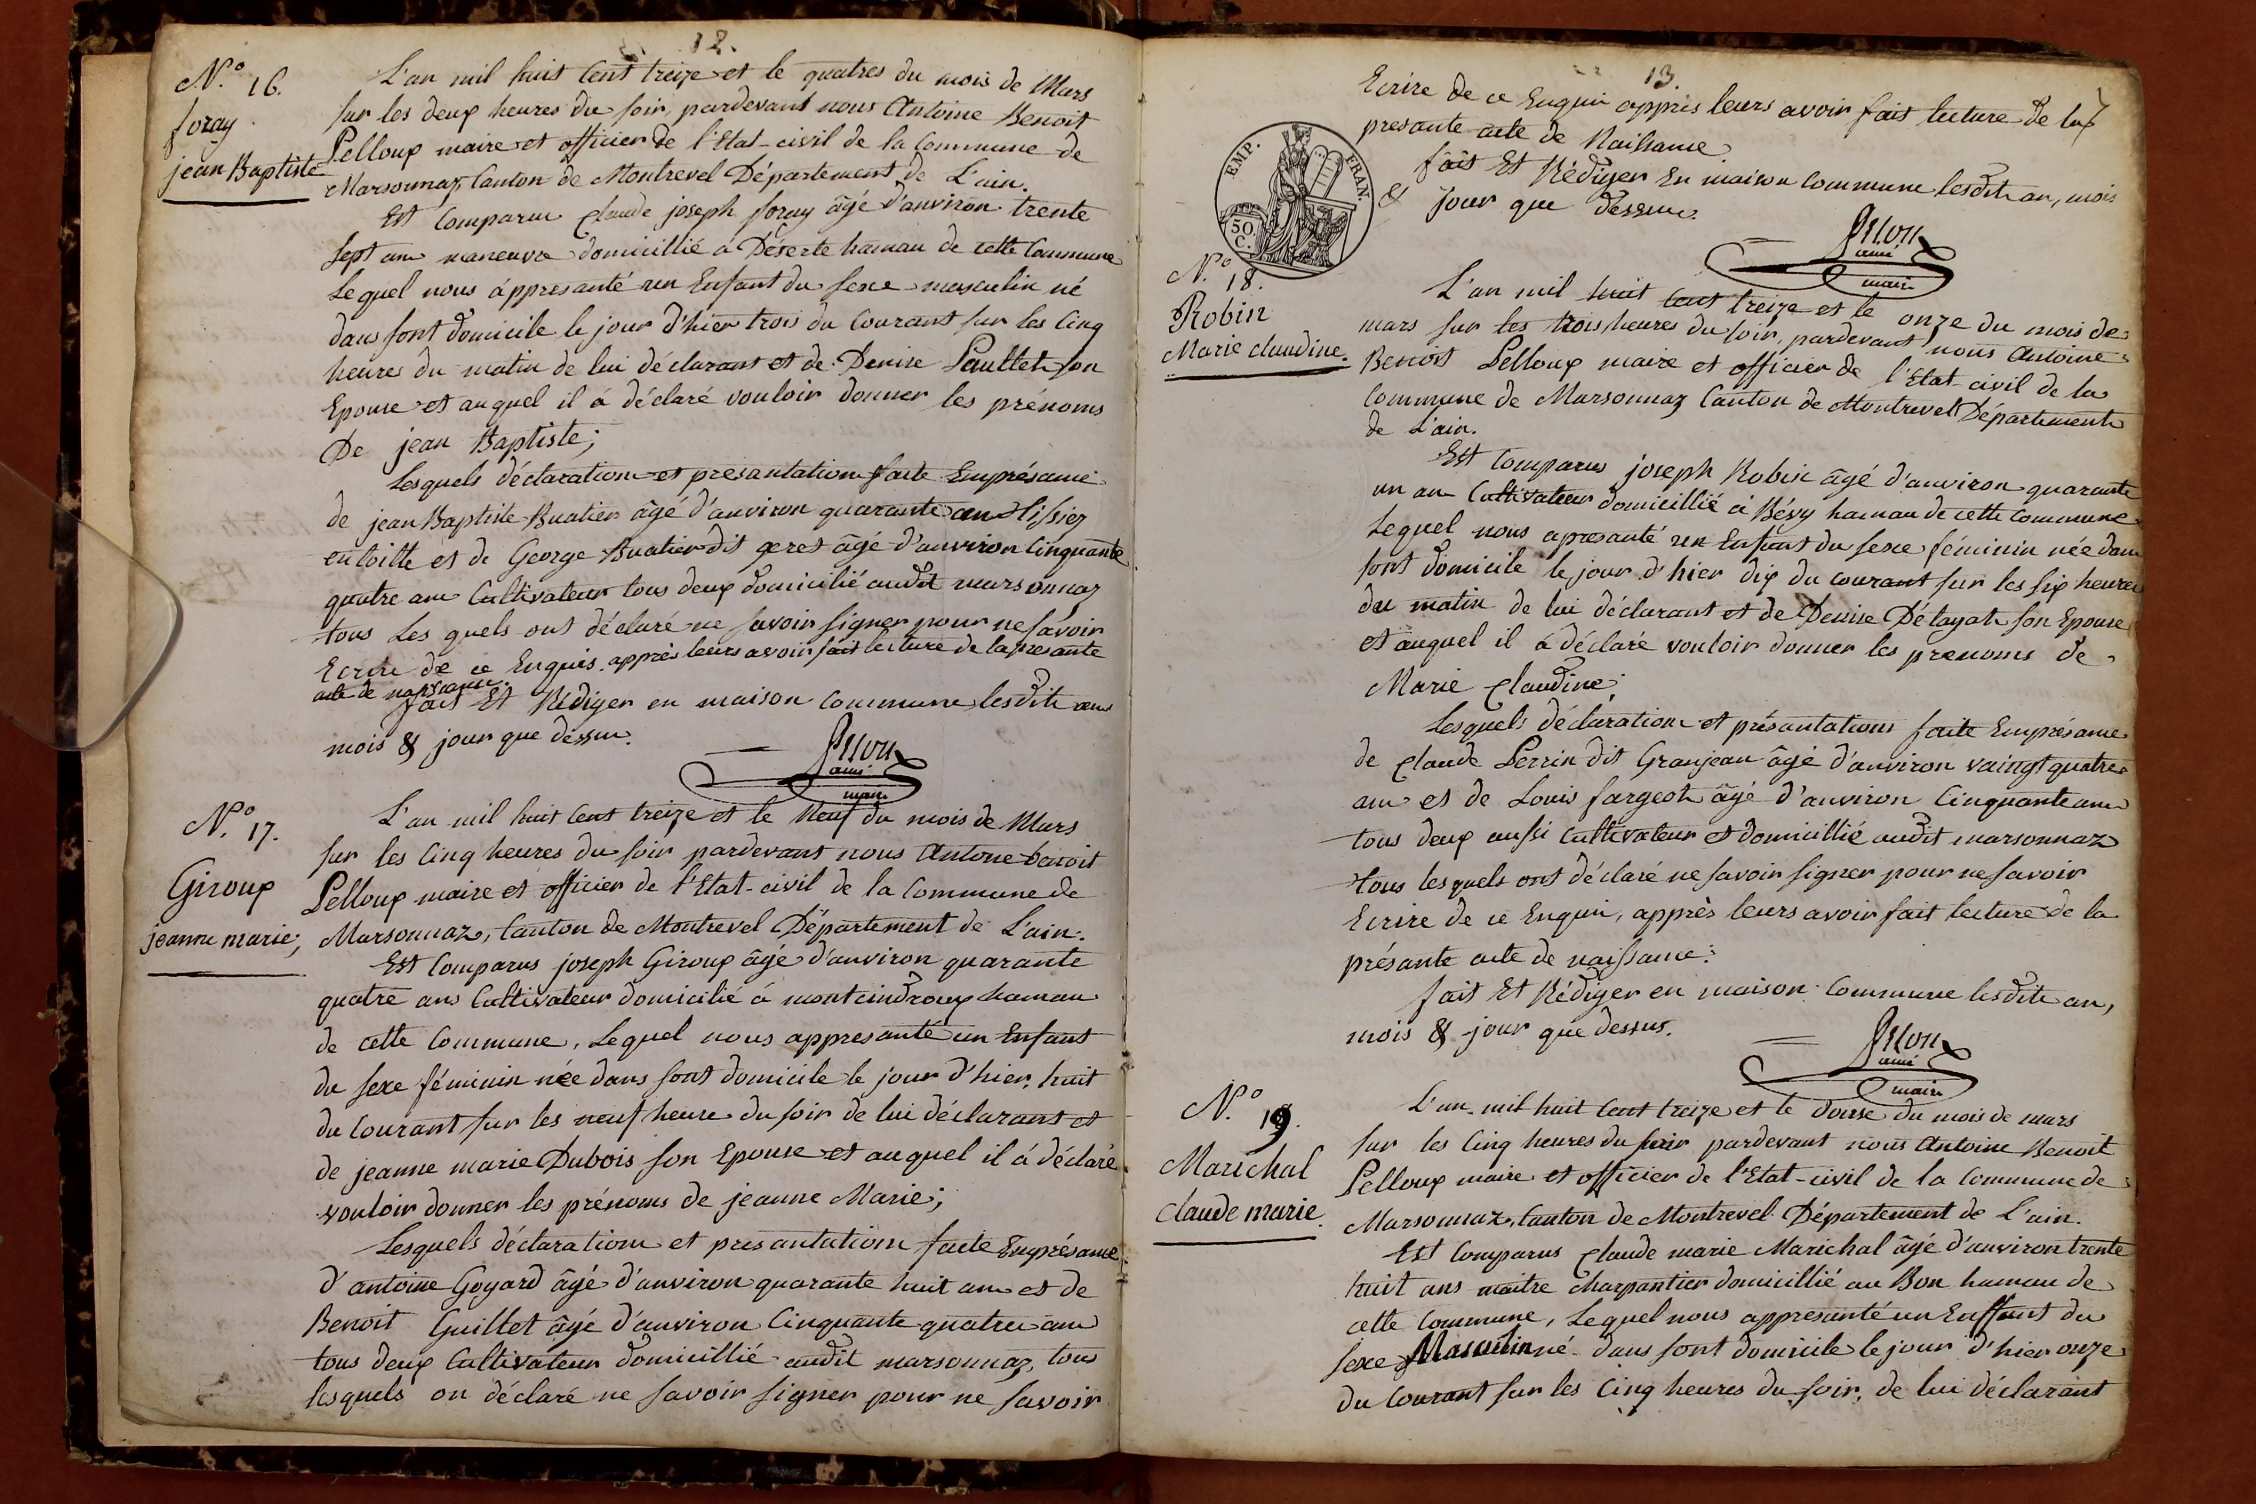 12.
N.o 16.
foray
jean Baptiste
L'an mil huit Cent treize et le quatres du mois de Mars
sur les deux heures du soir, pardevant nous Antoine Benoit
Pelloux maire et officier de l'Etat-civil de la Commune de
Marsonnaz, Canton de Montrevel Département de L'ain.
Est Comparu Claude joseph foray âgé d'anviron trente
sept ans maneuvre domicillié a Déserte hamau de cette Commune
Lequel nous áppresanté un Enfant du sexe masculin né
dans sont domicile le jour d'hier trois du Courant sur les Cinq
heures du matin de lui déclarant et de Denise Paultet son
Epouse et auquel il á déclaré vouloir donner les prénoms
De jean Baptiste;
Lesquels déclaration et presantation faite Enprésance
de jean Baptiste Buatier âgé d'anviron quarante an tissiez
en toille et de George Buatier dit geret âgé d'anviron Cinquante
quatre ans Cultivateur tous deux domicilié audit marsonnaz
tous Les quels ont déclaré ne savoir signer pour ne savoir
Ecrire de ce Enquis. apprès leurs avoir fait lecture de la presante
acte de naissance.
fait Et Rédiger en maison Commune lesdits ans
mois & jour que déssus.
ainé
maire
N.o 17.
Giroux
jeanne marie;
L'an mil huit Cent treize et le Neuf du mois de Mars
sur les Cinq heures du soir pardevant nous Antone benoit
Pelloux maire et officier de l'Etat-civil de la Commune de
Marsonnaz, Canton de Montrevel Département de L'ain.
Est Comparus joseph Giroux âgé d'anviron quarante
quatre ans Cultivateur domicilié á montcindroux hamau
de cette Commune, Lequel nous appresanté un Enfant
du sexe féminin née dans sont domicile le jour d'hier, huit
du Courant sur les neuf heure du soir de lui déclarant et
de jeanne marie Dubois son Epouse et auquel il á déclaré
vouloir donner les prénoms de jeanne Marie;
Lesquels déclaration et presantation faite Enprésance
d'antoine Goyard âgé d'anviron quarante huit ans et de
Benoit Guillet âgé d'anviron Cinquante quatre ans
tous deux Cultivateur domicillié audit marsonnaz, tous
lesquels on déclaré ne savoir signer pour ne savoir
13.
Ecrire de ce Enquis apprès leurs avoir fait lecture de la
presante acte de Naissance.
fait Et Rédiger En maison Commune lesdits an, mois
& jour que déssus.
EMP. FRAN.
50 C.
ainé
maire
N.o 18.
Robin
Marie claudine.
L'an mil huit Cent treize et le onze du mois de
mars sur les trois heures du soir, pardevant nous Antoine
Benoit Pelloux maire et officier de l'Etat-civil de la
Commune de Marsonnaz Canton de Montrevel Département
de L'ain.
Est Comparus joseph Robin âgé d'anviron quarante
un an Cultivateur domicillié á Bévy hamau de cette Commune
Lequel nous apresanté un Enfant du sexe féminin née dans
sont domicile le jour d'hier dix du courant sur les six heures
du matin de lui déclarant et de Denise Délayat son Epouse
et auquel il á déclaré vouloir donner les prenoms de
Marie Claudine;
Lesquels déclaration et présantations faite Enprésance
de Claude Perrin dit Granjean âgé d'anviron vaingt quatre
ans et de Louis fargeot âgé d'anviron Cinquante ans
tous deux aussi Cultivateur et domicillié audit marsonnaz
tous lesquels ont déclaré ne savoir signer pour ne savoir
Ecrire de ce Enquis, apprès leurs avoir fait lecture de la
présante acte de naissance:
fait Et Rédiger en maison Commune lesdits an,
mois & jour que dessus.
ainé
maire
N.o 19.
Marichal
Claude marie.
L'an mil huit Cent treize et le douse du mois de mars
sur les Cinq heures du soir pardevant nous Antoine Benoit
Pelloux maire et officier de l'Etat-civil de la Commune de
Marsonnaz, Canton de Montrevel Département de L'ain.
Est Comparus Claude marie Marichal âgé d'anviron trente
huit ans maitre Charpantier domicillié au Bon hamau de
cette Commune, Lequel nous appresanté un Enffant du
sexe Masculin né dans sont domicile le jour d'hier onze
du Courant sur les Cinq heures du soir, de lui déclarant